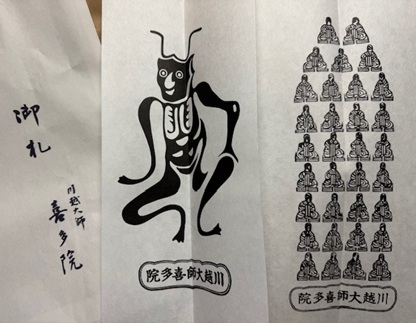 御札
川越大師
喜多院
川越大師喜多院
川越大師喜多院